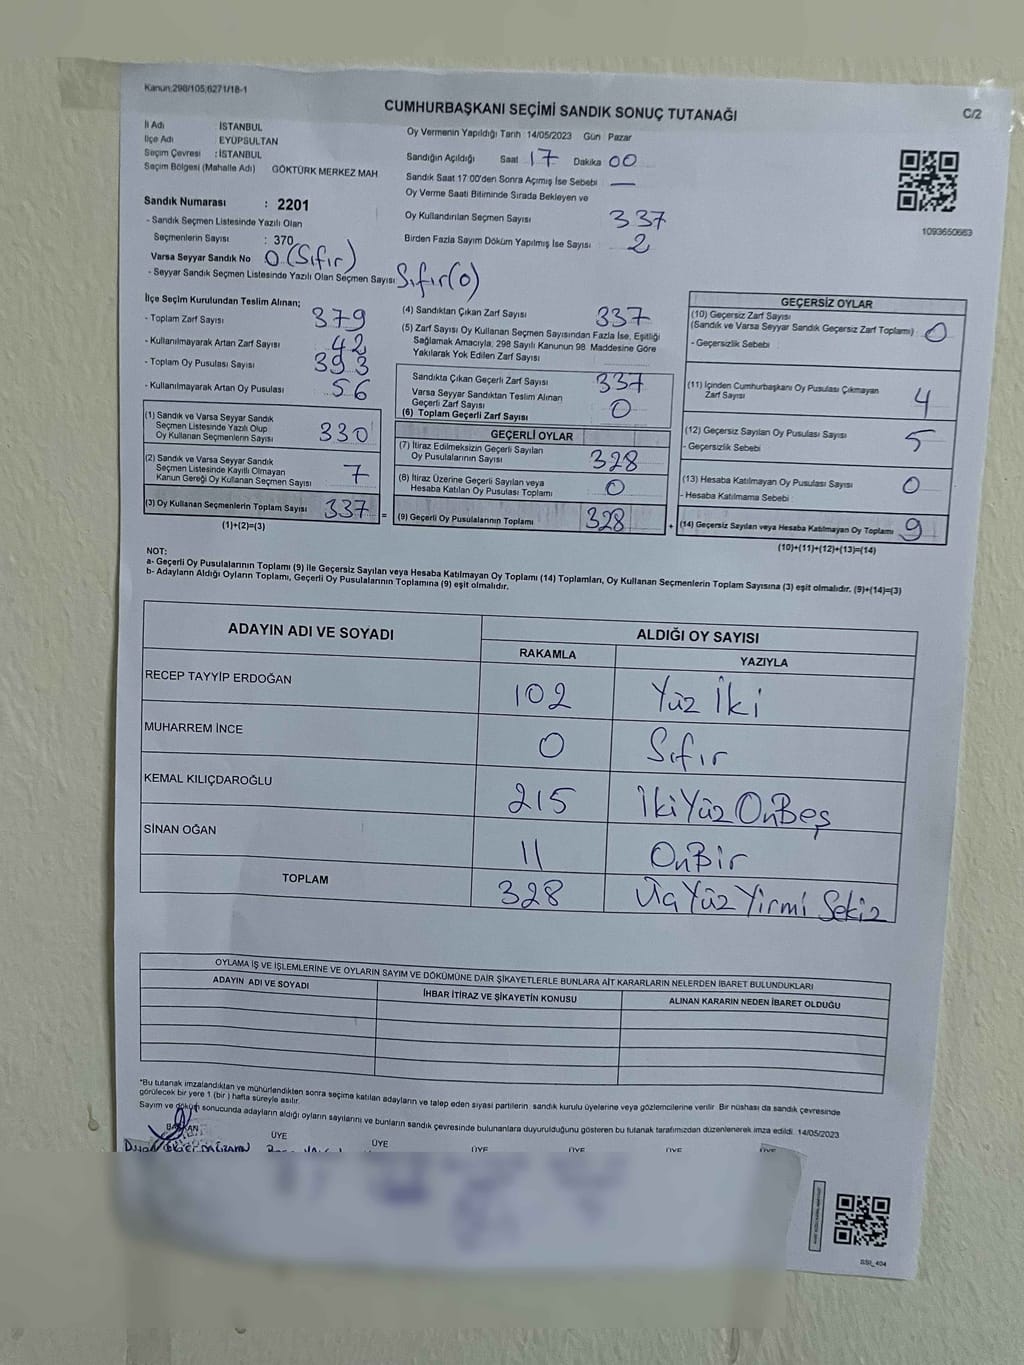 Kanun:298/105;6271/18-1
CUMHURBAŞKANI SEÇİMİ SANDIK SONUÇ TUTANAĞI
C/2
İl Adı İSTANBUL
İlçe Adı EYÜPSULTAN
Seçim Çevresi : İSTANBUL
Seçim Bölgesi (Mahalle Adı) GÖKTÜRK MERKEZ MAH
Sandık Numarası : 2201
- Sandık Seçmen Listesinde Yazılı Olan
Seçmenlerin Sayısı : 370
Varsa Seyyar Sandık No 0 (Sıfır)
- Seyyar Sandık Seçmen Listesinde Yazılı Olan Seçmen Sayısı Sıfır (0)
Oy Vermenin Yapıldığı Tarih 14/05/2023 Gün Pazar
Sandığın Açıldığı Saat 17 Dakika 00
Sandık Saat 17:00'den Sonra Açımış İse Sebebi —
Oy Verme Saati Bitiminde Sırada Bekleyen ve
Oy Kullandırılan Seçmen Sayısı 337
Birden Fazla Sayım Döküm Yapılmış İse Sayısı 2
1093650663
İlçe Seçim Kurulundan Teslim Alınan;
- Toplam Zarf Sayısı 379
- Kullanılmayarak Artan Zarf Sayısı 42
- Toplam Oy Pusulası Sayısı 393
- Kullanılmayarak Artan Oy Pusulası 56
(1) Sandık ve Varsa Seyyar Sandık
Seçmen Listesinde Yazılı Olup
Oy Kullanan Seçmenlerin Sayısı 330
(2) Sandık ve Varsa Seyyar Sandık
Seçmen Listesinde Kayıtlı Olmayan
Kanun Gereği Oy Kullanan Seçmen Sayısı 7
(3) Oy Kullanan Seçmenlerin Toplam Sayısı 337 =
(1)+(2)=(3)
(4) Sandıktan Çıkan Zarf Sayısı 337
(5) Zarf Sayısı Oy Kullanan Seçmen Sayısından Fazla İse, Eşitliği
Sağlamak Amacıyla, 298 Sayılı Kanunun 98. Maddesine Göre
Yakılarak Yok Edilen Zarf Sayısı
Sandıkta Çıkan Geçerli Zarf Sayısı 337
Varsa Seyyar Sandıktan Teslim Alınan
Geçerli Zarf Sayısı 0
(6) Toplam Geçerli Zarf Sayısı
GEÇERLİ OYLAR
(7) İtiraz Edilmeksizin Geçerli Sayılan
Oy Pusulalarının Sayısı 328
(8) İtiraz Üzerine Geçerli Sayılan veya
Hesaba Katılan Oy Pusulası Toplamı 0
(9) Geçerli Oy Pusulalarının Toplamı 328 +
GEÇERSİZ OYLAR
(10) Geçersiz Zarf Sayısı
(Sandık ve Varsa Seyyar Sandık Geçersiz Zarf Toplamı) 0
- Geçersizlik Sebebi
(11) İçinden Cumhurbaşkanı Oy Pusulası Çıkmayan
Zarf Sayısı 4
(12) Geçersiz Sayılan Oy Pusulası Sayısı 5
- Geçersizlik Sebebi
(13) Hesaba Katılmayan Oy Pusulası Sayısı 0
- Hesaba Katılmama Sebebi
(14) Geçersiz Sayılan veya Hesaba Katılmayan Oy Toplamı 9
(10)+(11)+(12)+(13)=(14)
NOT:
a- Geçerli Oy Pusulalarının Toplamı (9) ile Geçersiz Sayılan veya Hesaba Katılmayan Oy Toplamı (14) Toplamları, Oy Kullanan Seçmenlerin Toplam Sayısına (3) eşit olmalıdır. (9)+(14)=(3)
b- Adayların Aldığı Oyların Toplamı, Geçerli Oy Pusulalarının Toplamına (9) eşit olmalıdır.
ADAYIN ADI VE SOYADI ALDIĞI OY SAYISI
RAKAMLA YAZIYLA
RECEP TAYYİP ERDOĞAN 102 Yüz İki
MUHARREM İNCE 0 Sıfır
KEMAL KILIÇDAROĞLU 215 İki Yüz On Beş
SİNAN OĞAN 11 On Bir
TOPLAM 328 Üç Yüz Yirmi Sekiz
OYLAMA İŞ VE İŞLEMLERİNE VE OYLARIN SAYIM VE DÖKÜMÜNE DAİR ŞİKAYETLERLE BUNLARA AİT KARARLARIN NELERDEN İBARET BULUNDUKLARI
ADAYIN ADI VE SOYADI İHBAR İTİRAZ VE ŞİKAYETİN KONUSU ALINAN KARARIN NEDEN İBARET OLDUĞU
*Bu tutanak imzalandıktan ve mühürlendikten sonra seçime katılan adayların ve talep eden siyasi partilerin sandık kurulu üyelerine veya gözlemcilerine verilir. Bir nüshası da sandık çevresinde
görülecek bir yere 1 (bir) hafta süreyle asılır.
Sayım ve döküm sonucunda adayların aldığı oyların sayılarını ve bunların sandık çevresinde bulunanlara duyurulduğunu gösteren bu tutanak tarafımızdan düzenlenerek imza edildi. 14/05/2023
BAŞKAN ÜYE ÜYE ÜYE ÜYE ÜYE ÜYE
SSI_404